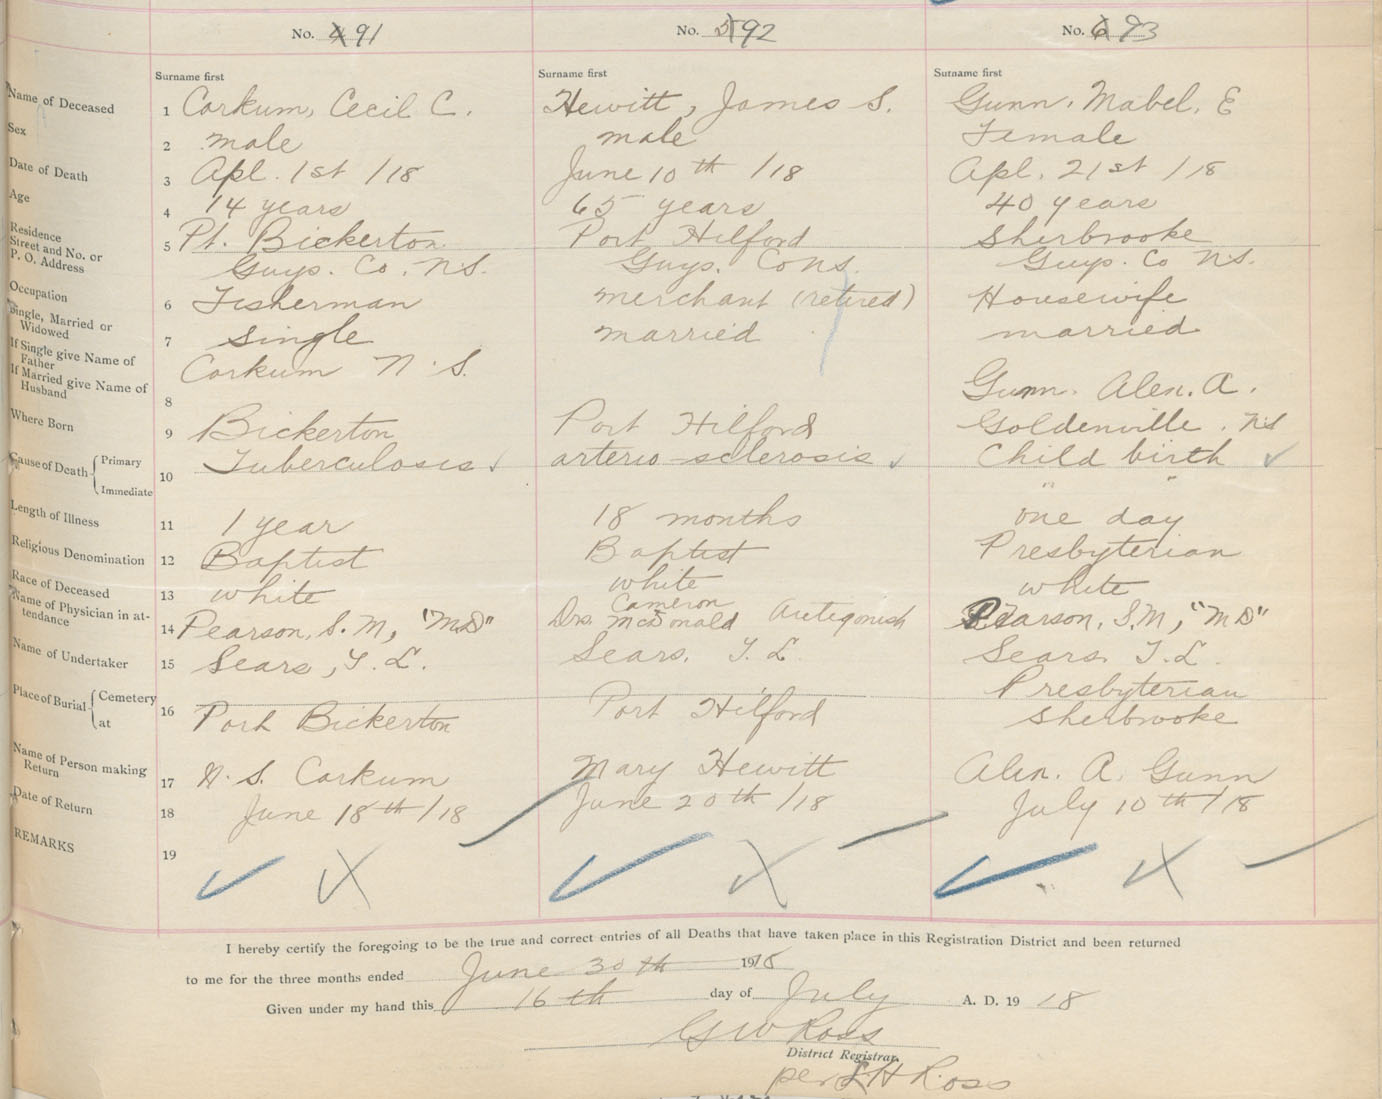 No. 4 91 No. 5 92 No. 6 93
Surname first Surname first Surname first
Name of Deceased 1 Corkum, Cecil C. Hewitt, James S. Gunn, Mabel, E
Sex 2 male male Female
Date of Death 3 Apl. 1st /18 June 10th /18 Apl. 21st /18
Age 4 14 years 65 years 40 years
Residence
Street and No. or
P. O. Address 5 Pt. Bickerton Port Hilford Sherbrooke
Guys. Co. N.S. Guys. Co NS. Guys. Co N.S.
Occupation 6 Fisherman merchant (retired) Housewife
Single, Married or
Widowed 7 Single married married
If Single give Name of
Father Corkum N. S.
If Married give Name of
Husband 8 Gunn. Alex. A.
Where Born 9 Bickerton Port Hilford Goldenville. NS
Cause of Death Primary Tuberculosis arterio-sclerosis Child birth
Immediate 10 " "
Length of Illness 11 1 year 18 months one day
Religious Denomination 12 Baptist Baptist Presbyterian
Race of Deceased 13 white white white
Name of Physician in at-
tendance 14 Pearson, S. M, "MD" Drs. Cameron McDonald Antigonish Pearson, S.M, "MD"
Name of Undertaker 15 Sears, T. L. Sears, T. L Sears T. L.
Place of Burial Cemetery Presbyterian
at 16 Port Bickerton Port Hilford Sherbrooke
Name of Person making
Return 17 N. S. Corkum Mary Hewitt Alex. A. Gunn
Date of Return 18 June 18th /18 June 20th /18 July 10th /18
REMARKS 19
I hereby certify the foregoing to be the true and correct entries of all Deaths that have taken place in this Registration District and been returned
to me for the three months ended June 30th 1918
Given under my hand this 16th day of July A. D. 19 18
G W Ross
District Registrar.
per H Ross